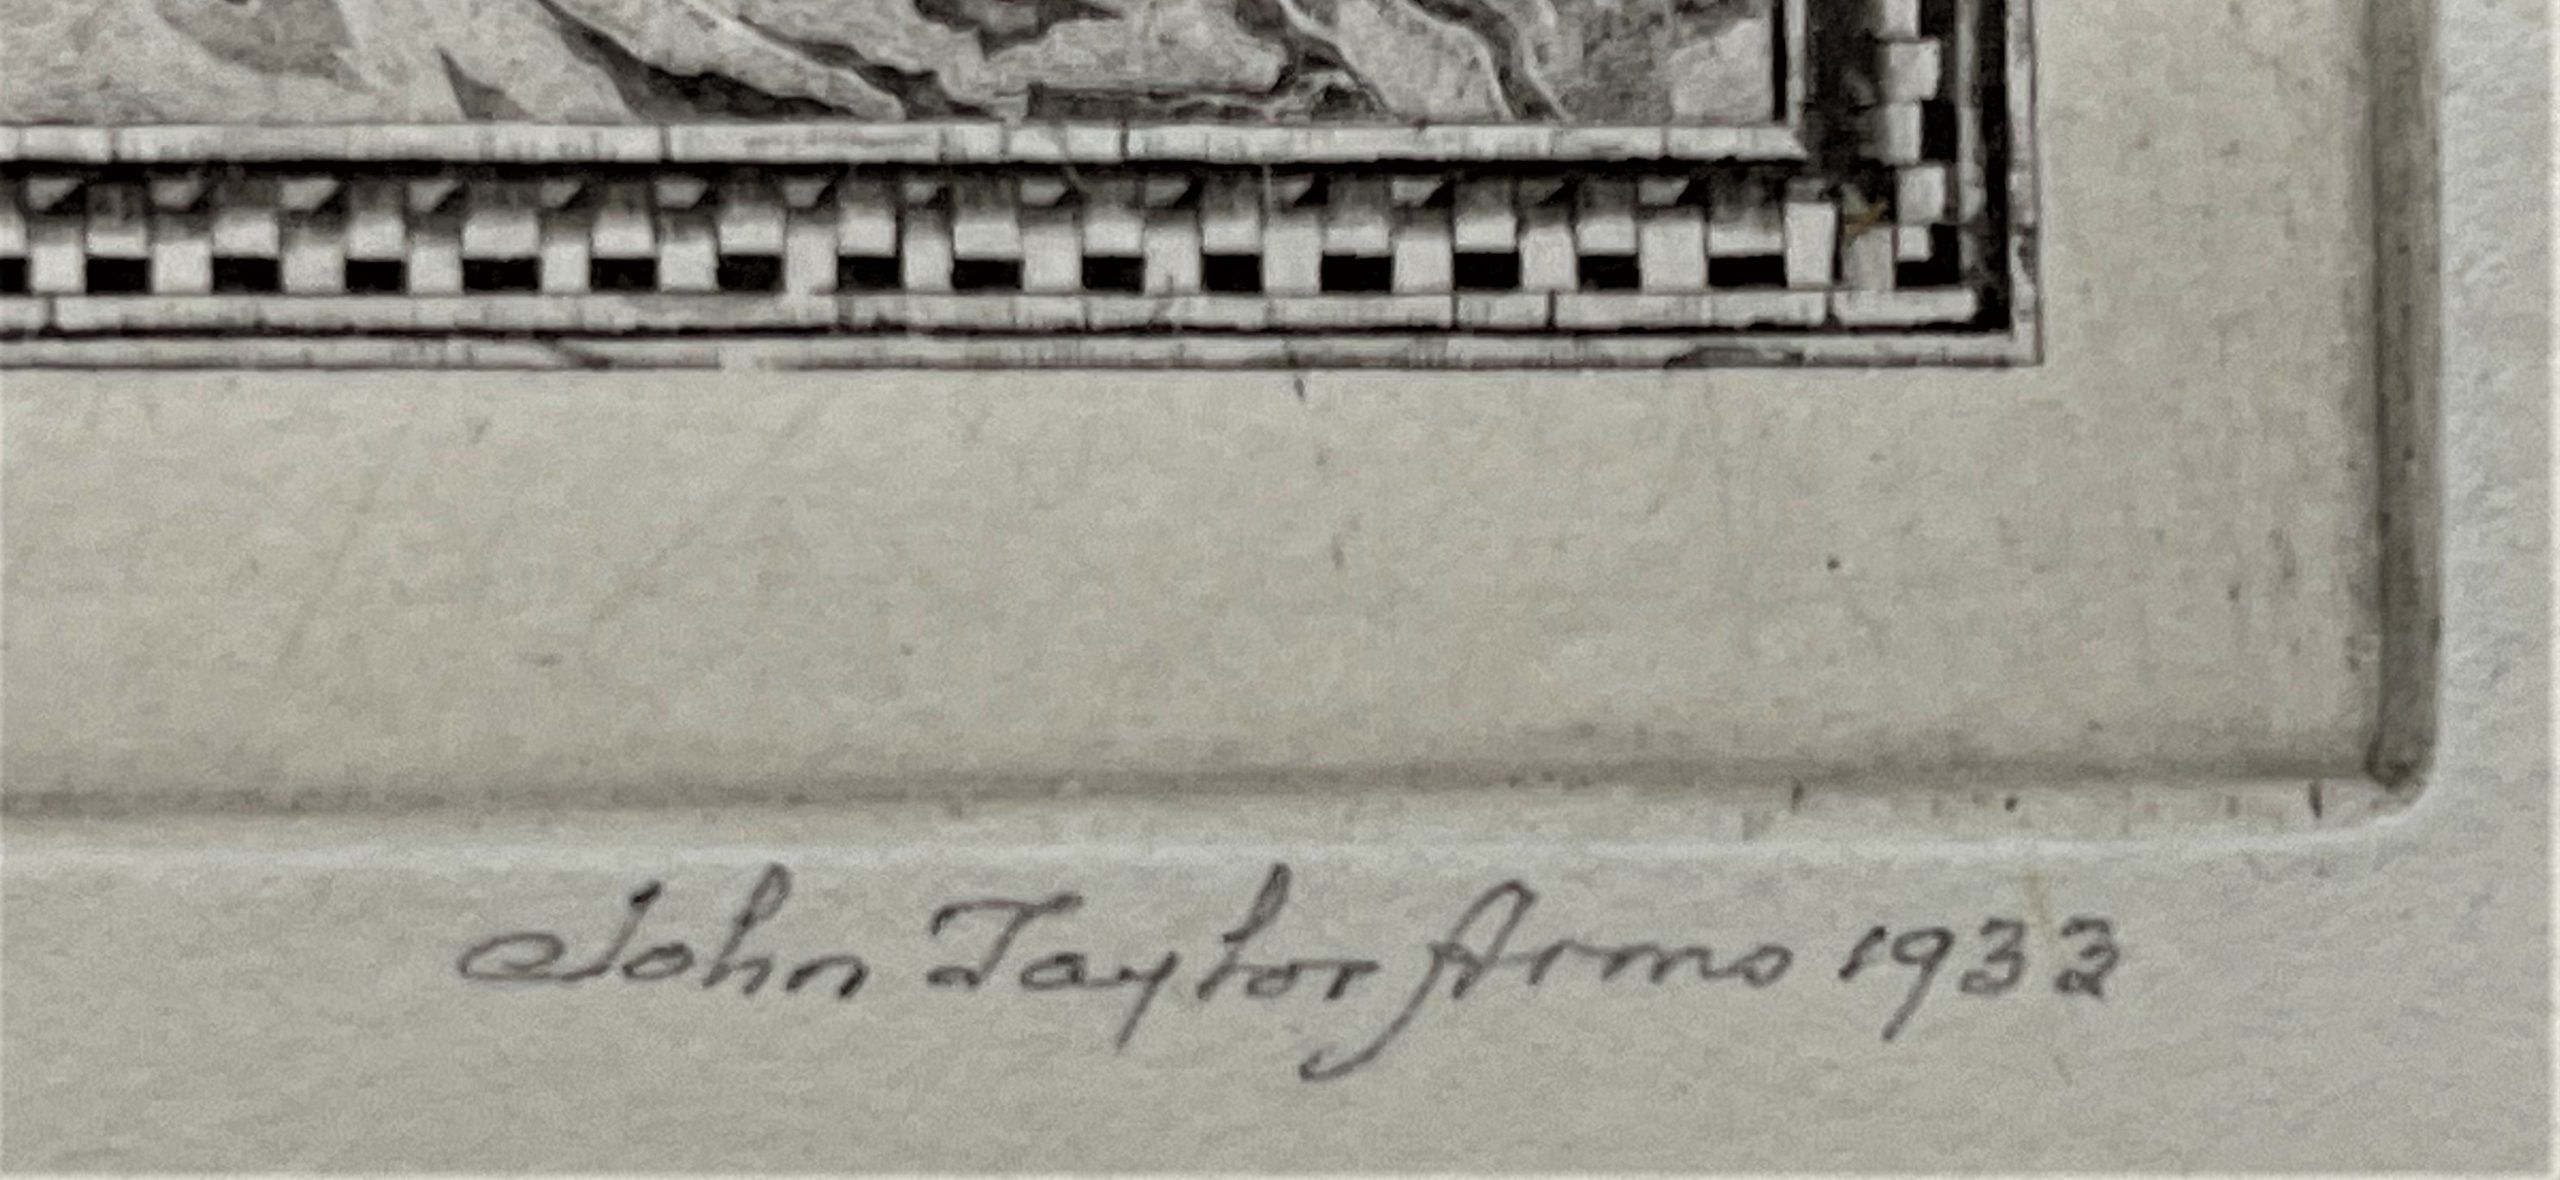 John Taylor Arms 1933